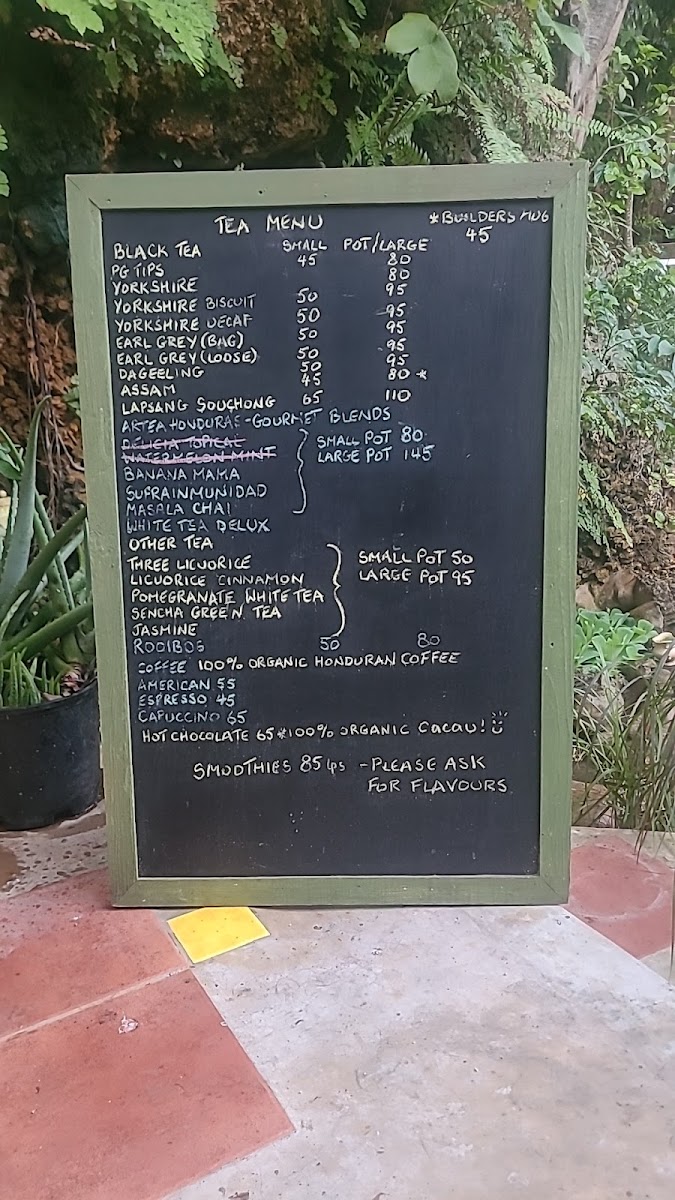 TEA MENU *BUILDERS MUG
45
BLACK TEA SMALL POT/LARGE
PG TIPS 45 80
YORKSHIRE 80
YORKSHIRE BISCUIT 50 95
YORKSHIRE DECAF 50 95
EARL GREY (BAG) 50 95
EARL GREY (LOOSE) 50 95
DAGEELING 50 95
ASSAM 45 80 *
LAPSANG SOUCHONG 65 110
ARTEA HONDURAS - GOURMET BLENDS
DELICIA TOPICAL SMALL POT 80
WATERMELON MINT LARGE POT 145
BANANA MAMA
SUFRAINMUNIDAD
MASALA CHAI
WHITE TEA DELUX
OTHER TEA
THREE LICUORICE SMALL POT 50
LICUORICE CINNAMON LARGE POT 95
POMEGRANATE WHITE TEA
SENCHA GREEN TEA
JASMINE
ROOIBOS 50 80
COFFEE 100% ORGANIC HONDURAN COFFEE
AMERICAN 55
ESPRESSO 45
CAPUCCINO 65
HOT CHOCOLATE 65 *100% ORGANIC Cacau!
SMOOTHIES 85 Lps - PLEASE ASK
FOR FLAVOURS